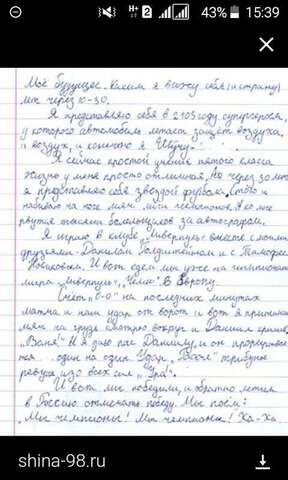 43% 15:39
Моё будущее. Каким я вижу себя (и страну)
лет через 10-30.
Я представляю себя в 2103 году супергероем,
у которого автомобиль летает
воздух, и конечно я
Я сейчас простой ученик пятого класса
жизнь у меня просто отличная. Но через 30 лет
я представляю себя звездой футбола.
на поле лиги чемпионов. А ко мне
рвутся тысячи болельщиков за автографом.
Я играю в клубе „Ливерпуль" вместе с моими
друзьями- Данилом и с Тимофеем
И вот едем мы уже на чемпионат
мира „Ливерпуль", „Челси" в Европу.
Счёт „0-0" на последних минутах
матча и наш удар от ворот и вот я принимаю
мяч на грудь смотрю вокруг и Данил кричит
„Ваня" И я даю пас Данилу, и он
один на один. Удар трибуны
ревут изо всех сил „Ура".
И вот мы победили, и обратно летим
в Россию отмечать победу. Мы поём:
„Мы чемпионы! Мы чемпионы! Ха-Ха
shina-98.ru